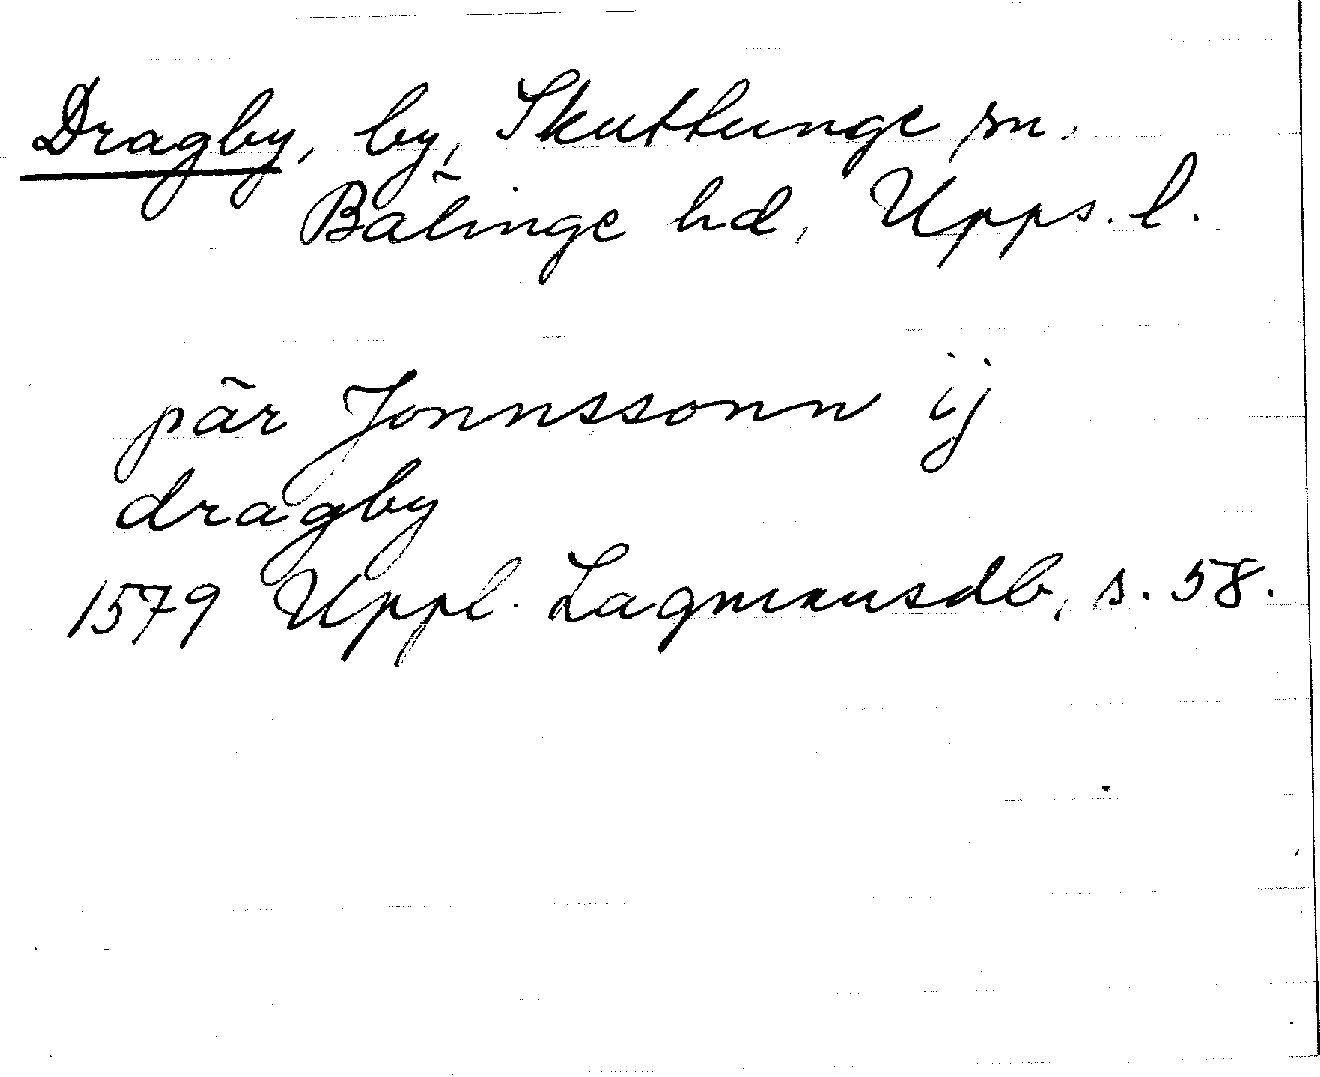 Dragby, by, Skuttunge sn.
Bälinge hd, Upps. l.
pär Jonnssonn ij
dragby
1579 Uppl. Lagmansdb, s. 58.